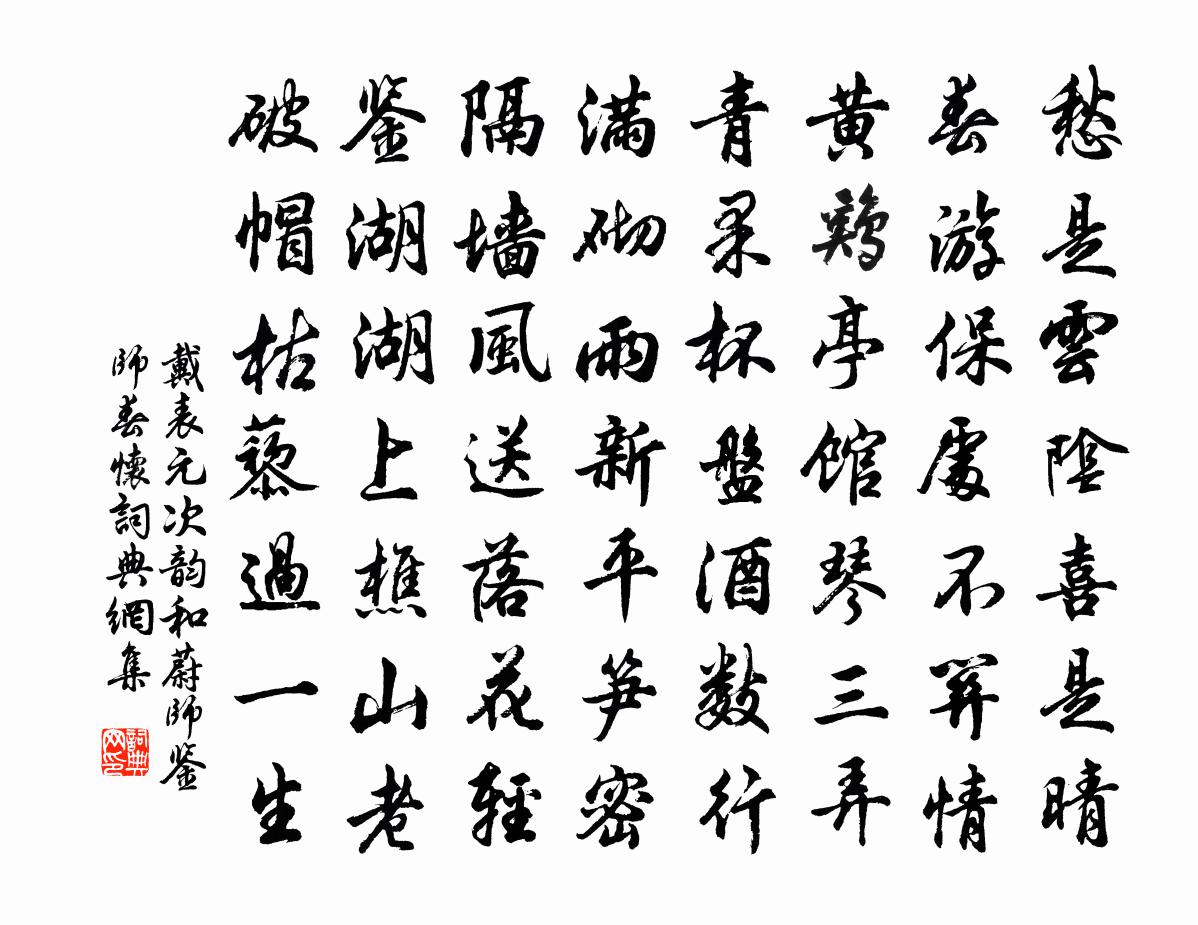 愁是雲陰喜是晴
春游保處不關情
黃鷄亭館琴三弄
青果杯盤酒數行
滿砌雨新平笋密
隔墻風送落花輕
鑒湖湖上樵山老
破帽枯藜過一生
戴表元次韵和蔚師鑒
師春懷詞典網集
詞典网印